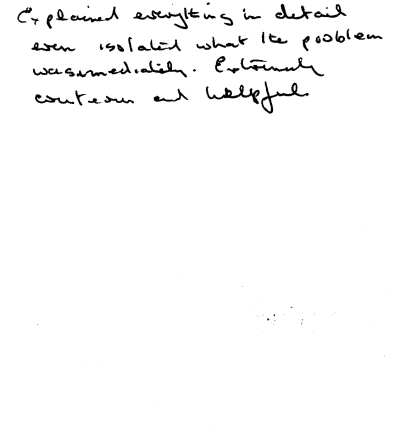 Explained everything in detail
even isolated what the problem
was immediately. Extremely
courteous and helpful.